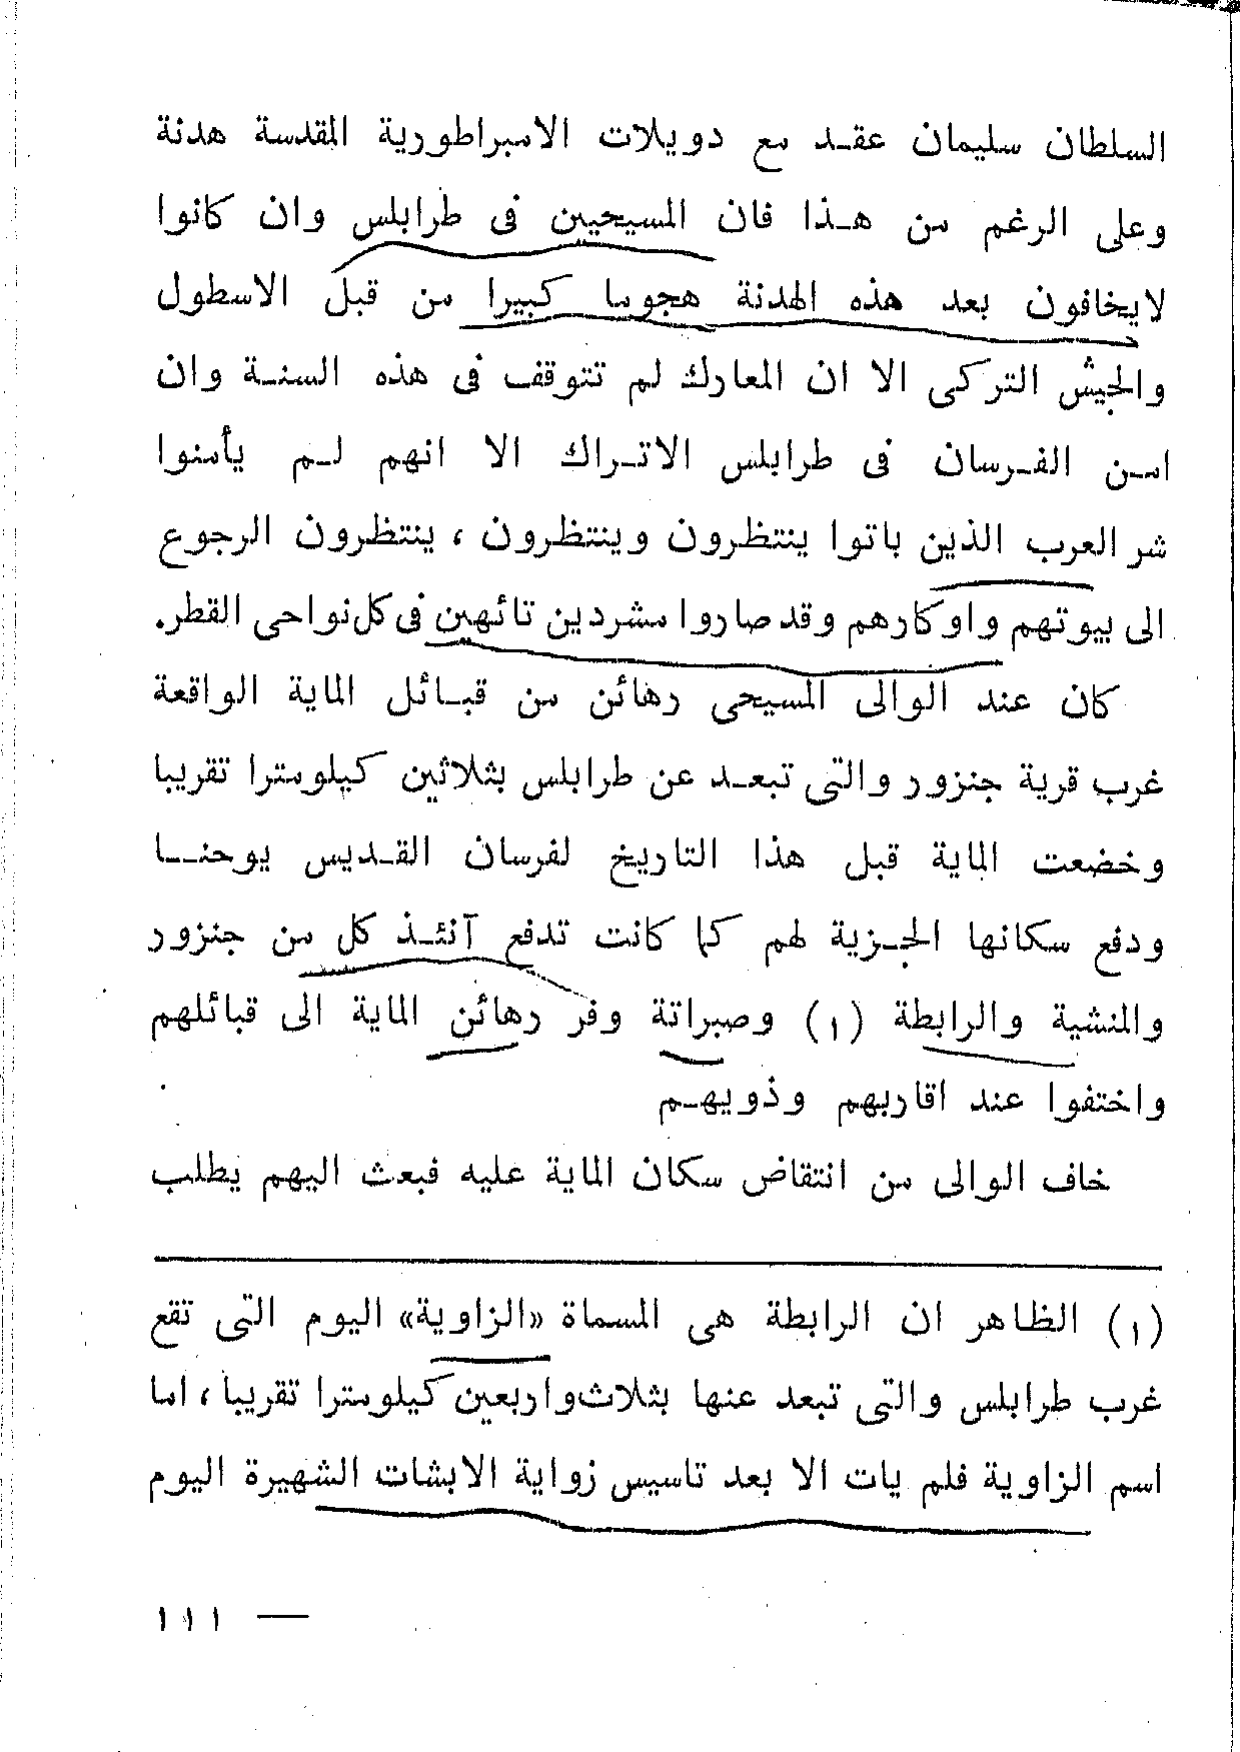 السلطان سليمان عقد مع دويلات الامبراطورية المقدسة هدنة
وعلى الرغم من هذا فان المسيحيين فى طرابلس وان كانوا
لايخافون بعد هذه الهدنة هجوما كبيرا من قبل الاسطول
والجيش التركى الا ان المعارك لم تتوقف فى هذه السنة وان
امن الفرسان فى طرابلس الاتراك الا انهم لم يأمنوا
شر العرب الذين باتوا ينتظرون وينتظرون ، ينتظرون الرجوع
الى بيوتهم واوكارهم وقد صاروا مشردين تائهين فى كل نواحى القطر.
كان عند الوالى المسيحى رهائن من قبائل الماية الواقعة
غرب قرية جنزور والتى تبعد عن طرابلس بثلاثين كيلومترا تقريبا
وخضعت الماية قبل هذا التاريخ لفرسان القديس يوحنا
ودفع سكانها الجزية لهم كما كانت تدفع آنئذ كل من جنزور
والمنشية والرابطة (١) وصبراتة وفر رهائن الماية الى قبائلهم
واختفوا عند اقاربهم وذويهم
خاف الوالى من انتقاض سكان الماية عليه فبعث اليهم يطلب
(١) الظاهر ان الرابطة هى المسماة «الزاوية» اليوم التى تقع
غرب طرابلس والتى تبعد عنها بثلاث واربعين كيلومترا تقريبا ، اما
اسم الزاوية فلم يات الا بعد تاسيس زواية الابشات الشهيرة اليوم
— ١١١